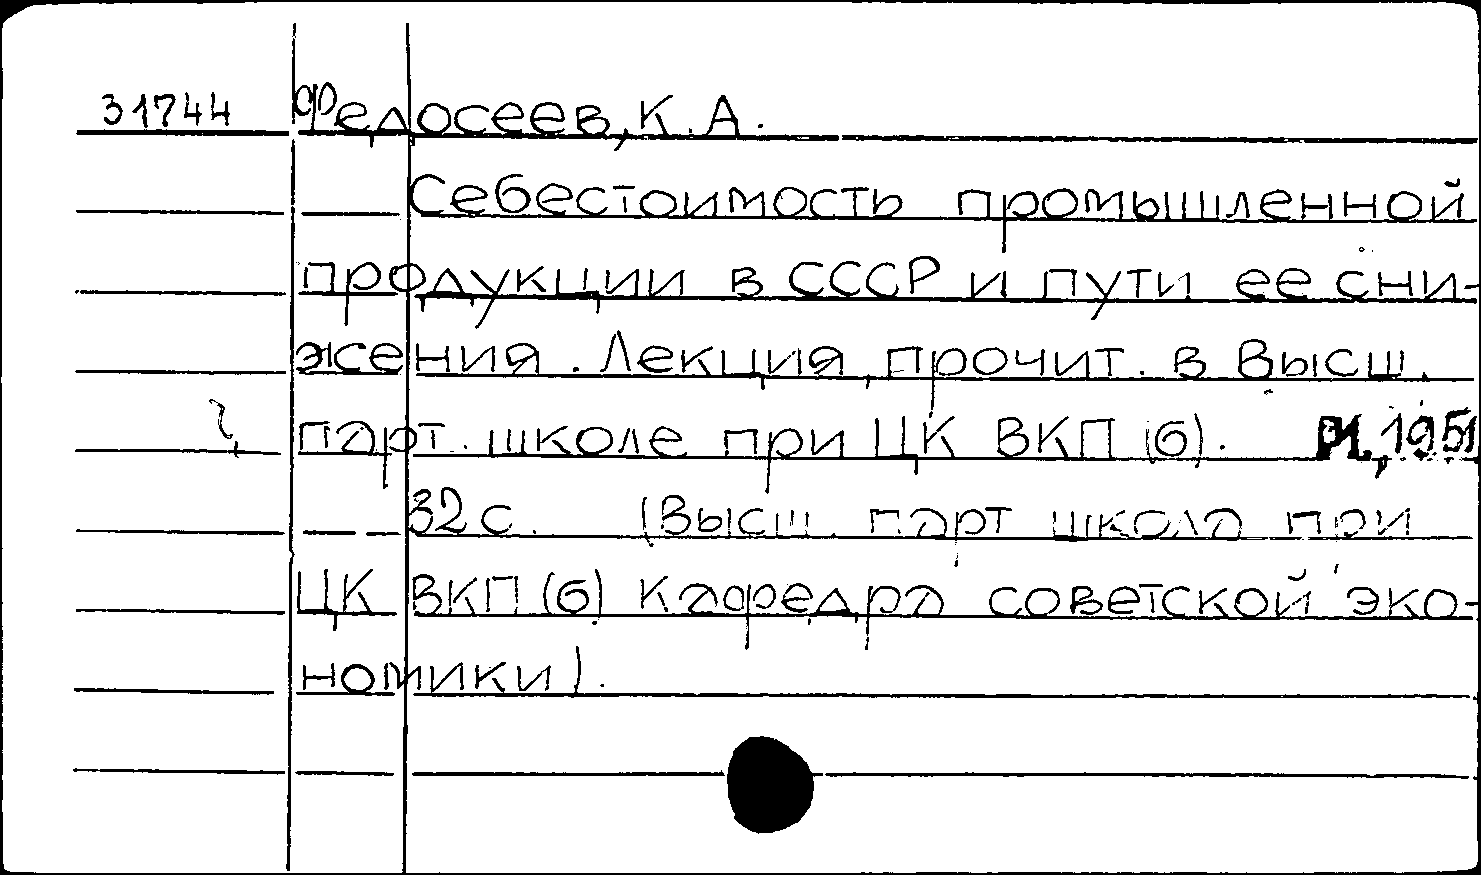 31744 Федосеев, К. А.
Себестоимость промышленной
продукции в СССР и пути ее сни-
жения. Лекция, прочит. в Высш.
парт. школе при ЦК ВКП(б). М., 1951
32 с. (Высш. парт школа при
ЦК ВКП(б) Кафедра советской эко-
номики).